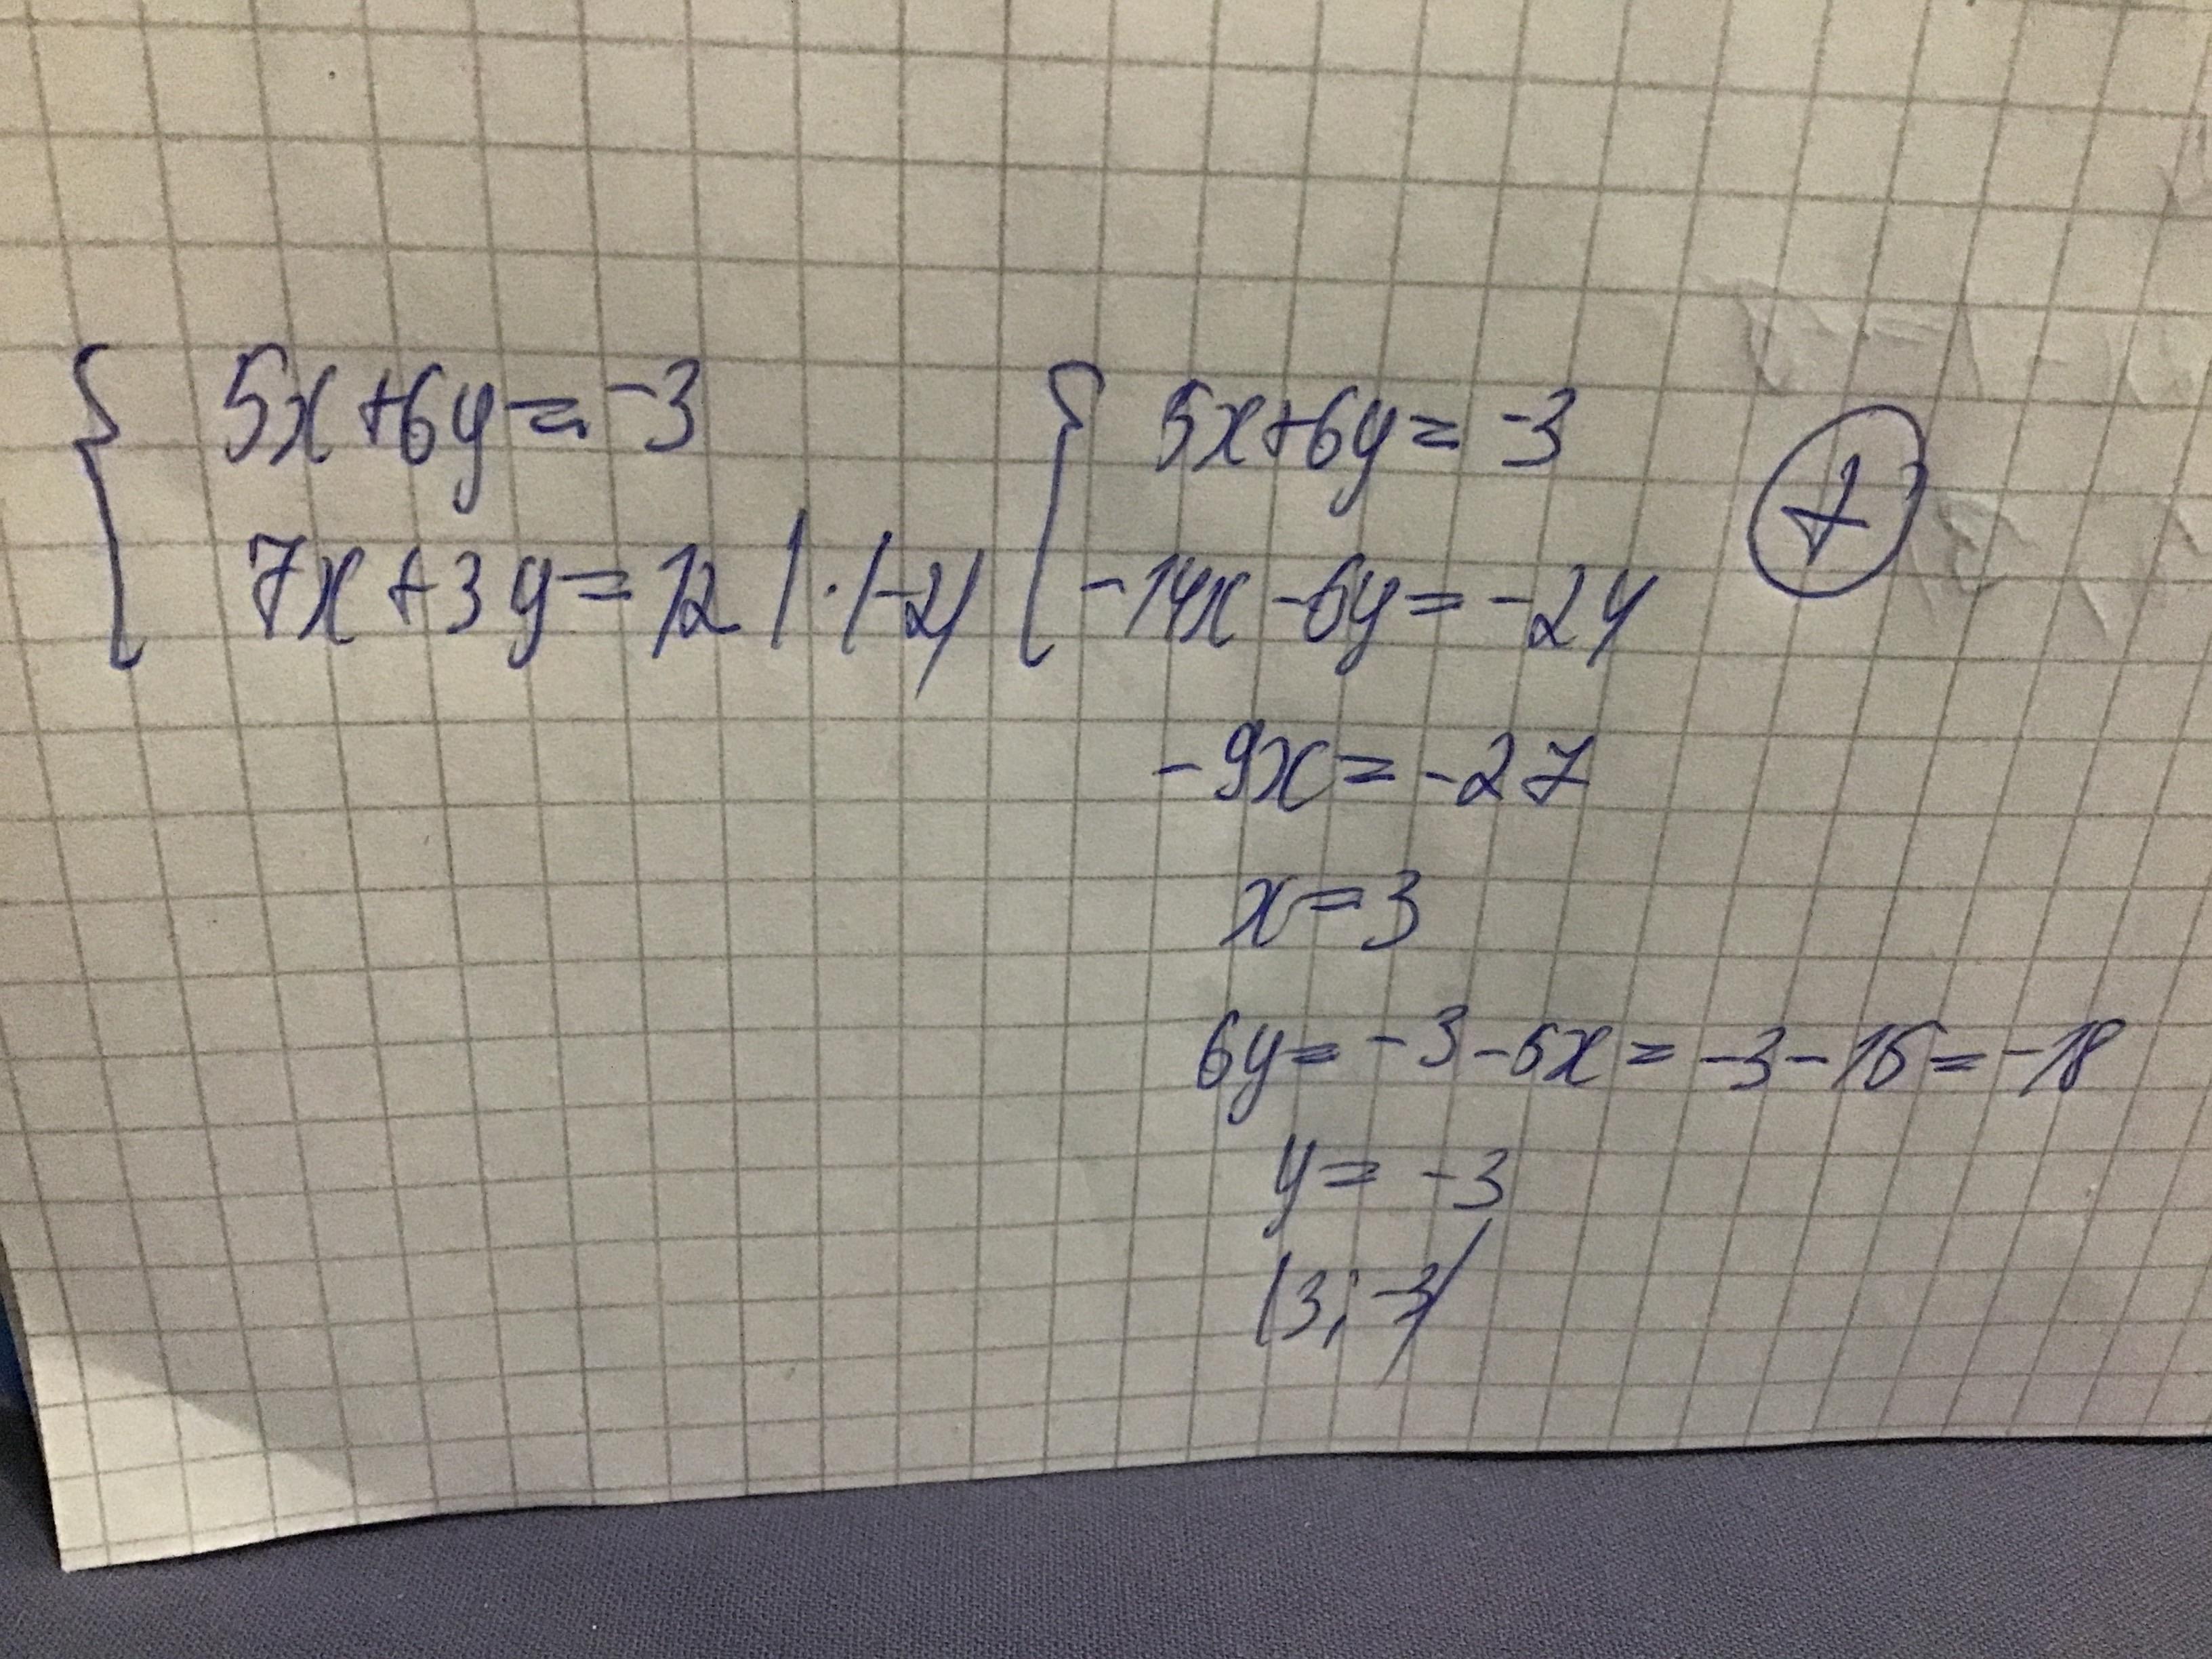 5x+6y=-3
7x+3y=12 |·(-2)
5x+6y=-3
-14x-6y=-24
+
-9x=-27
x=3
6y=-3-5x=-3-15=-18
y=-3
(3;-3)